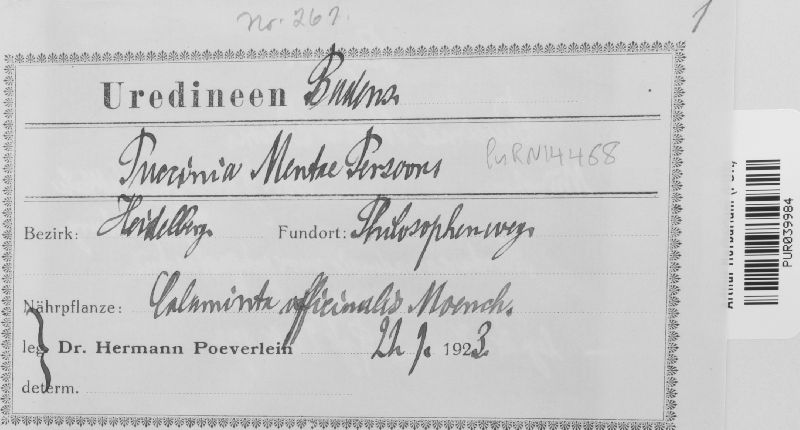 No. 267.
1
Uredineen Badens.
Puccinia Mentae Persoons
PurN14468
Bezirk: Heidelberg. Fundort: Philosophenweg.
Nährpflanze: Calaminta officinalis Moench.
leg. Dr. Hermann Poeverlein 9. 1923.
determ.
Arthur Herbarium
PUR039984